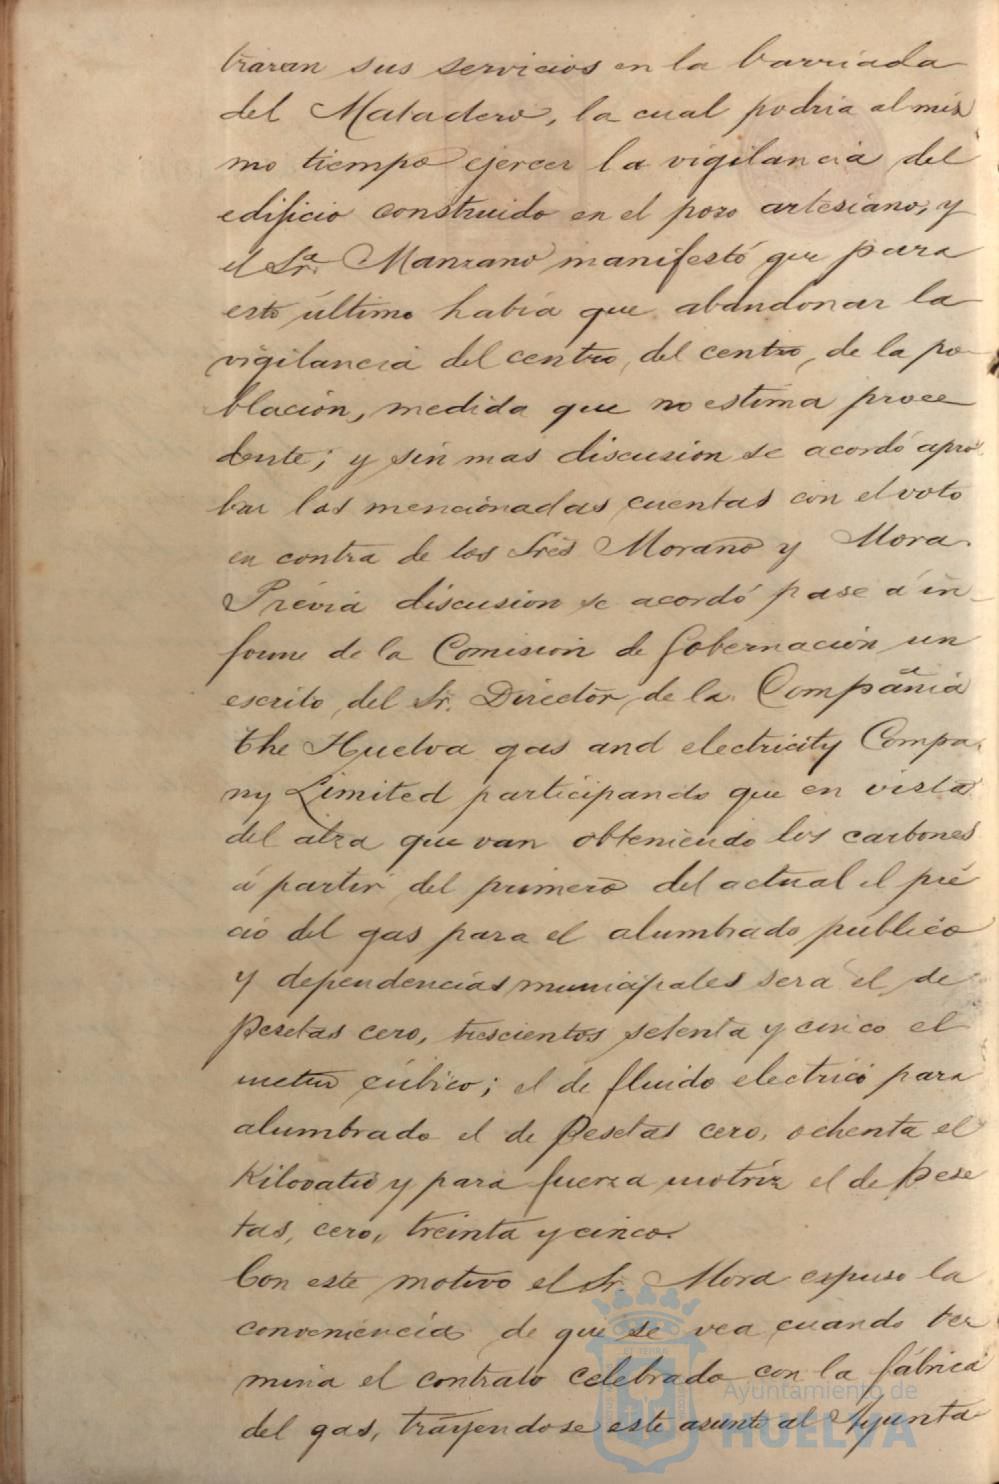 traran sus servicios en la barriada
del Matadero, la cual podria al mis
mo tiempo ejercer la vigilancia del
edificio construido en el pozo artesiano, y
el Sr. Manzano manifestó que para
esto último habia que abandonar la
vigilancia del centro, del centro, de la po-
blación, medida que no estima proce
dente; y sin mas discusion se acordó apro
bar las mencionadas cuentas con el voto
en contra de los Sres Morano y Mora.
Prévia discusion se acordó pase á in-
forme de la Comision de Gobernación un
escrito del Sr. Director de la Compañia
the Huelva gas and electricity Compa
ny Limited participando que en vista
del alza que van obteniendo los carbones
á partir del primero del actual el pre
cio del gas para el alumbrado público
y dependencias municipales sera el de
pesetas cero, trescientos setenta y cinco el
metro cúbico; el de fluido electrico para
alumbrado el de pesetas cero, ochenta el
Kilovatio y para fuerza motriz el de pese
tas, cero, treinta y cinco.
Con este motivo el Sr. Mora expuso la
conveniencia de que se vea cuando ter
mina el contrato celebrado con la fábrica
del gas, trayendose este asunto al Ayunta
Ayuntamiento de
HUELVA